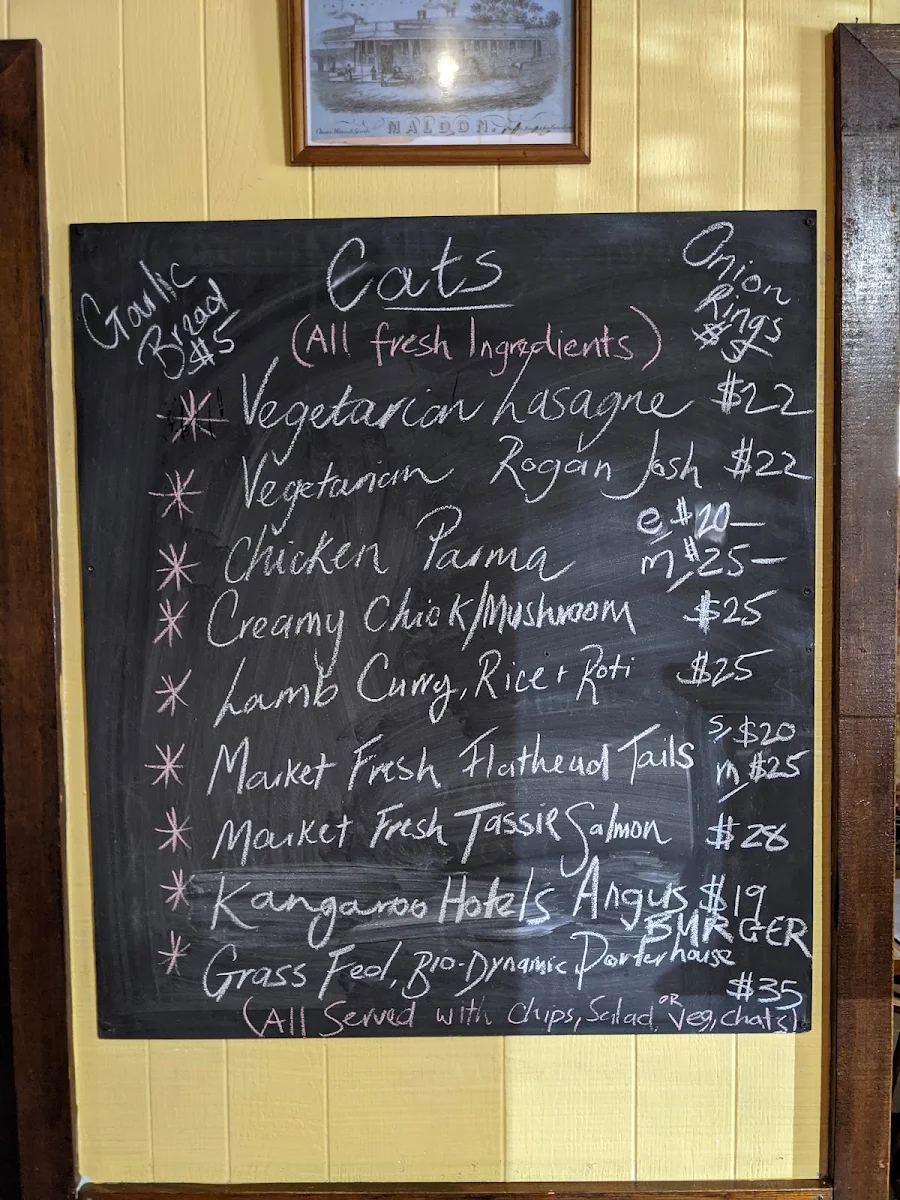 MALDON.
Garlic
Bread
$5
Eats
Onion
Rings
$5
(All fresh Ingredients)
* Vegetarian Lasagne $22
* Vegetarian Rogan Josh $22
* Chicken Parma e $20—
m, $25—
* Creamy Chick/Mushroom $25
* Lamb Curry, Rice + Roti $25
* Market Fresh Flathead Tails s, $20
m, $25
* Market Fresh Tassie Salmon $28
* Kangaroo Hotels Angus $19
BURGER
* Grass Fed, Bio-Dynamic, Porterhouse
$35
(All Served with Chips, Salad OR Veg, chats)